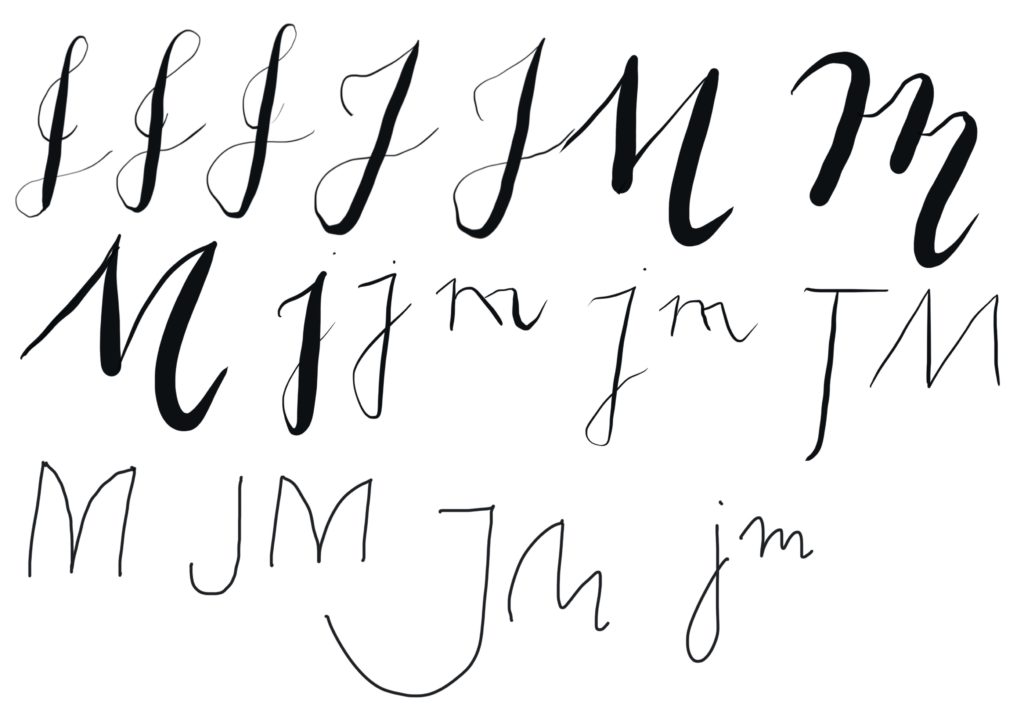 J J J J J M M
M j j m j m J M
M J M J M j m